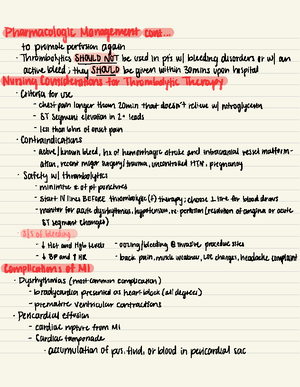 Pharmacologic Management cont...
to promote perfusion again
- Thrombolytics SHOULD NOT be used in pts w/ bleeding disorders or w/ an
active bleed; they SHOULD be given within 30mins upon hospital
Nursing Considerations for Thrombolytic Therapy
- Criteria for use
- chest pain longer than 20min that doesn't relieve w/ nitroglycerin
- ST segment elevation in 2+ leads
- less than 6hrs of onset pain
- Contraindications
- active/known bleed, hx of hemorrhagic stroke and intracranial vessel malform-
ation, recent major surgery/trauma, uncontrolled HTN, pregnancy
- Safety w/ thrombolytics
- minimize # of pt punctures
- start IV lines BEFORE thrombolytic therapy; choose 1 line for blood draws
- monitor for acute dysrhythmias, hypotension, re-perfusion (resolution of angina or acute
ST segment changes)
S/S of bleeding
- ↓ Hct and Hgb levels - oozing/bleeding @ invasive procedure sites
- ↓ BP and ↑ HR - back pain, muscle weakness, LOC changes, headache complaint
Complications of MI
- Dysrhythmias (most common complication)
- bradycardia presented as heart block (all degrees)
- premature ventricular contractions
- Pericardial effusion
- cardiac rupture from MI
- Cardiac tamponade
- accumulation of pus, fluid, or blood in pericardial sac